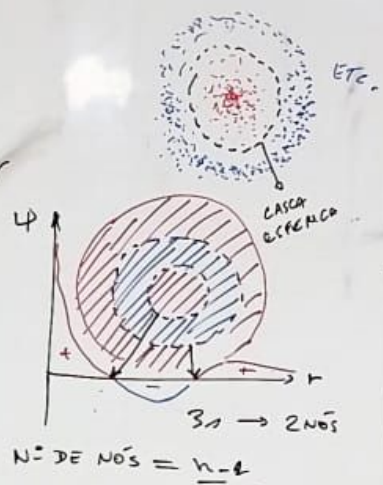 ETC.
CASCA
ESFÉRICA
Ψ
+
-
+
r
3s → 2 NÓS
Nº DE NÓS = n-1